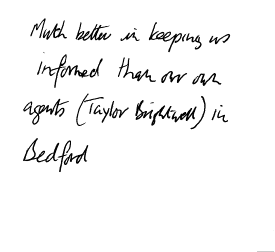 Much better in keeping us
informed than our own
agents (Taylor Brightwell) in
Bedford